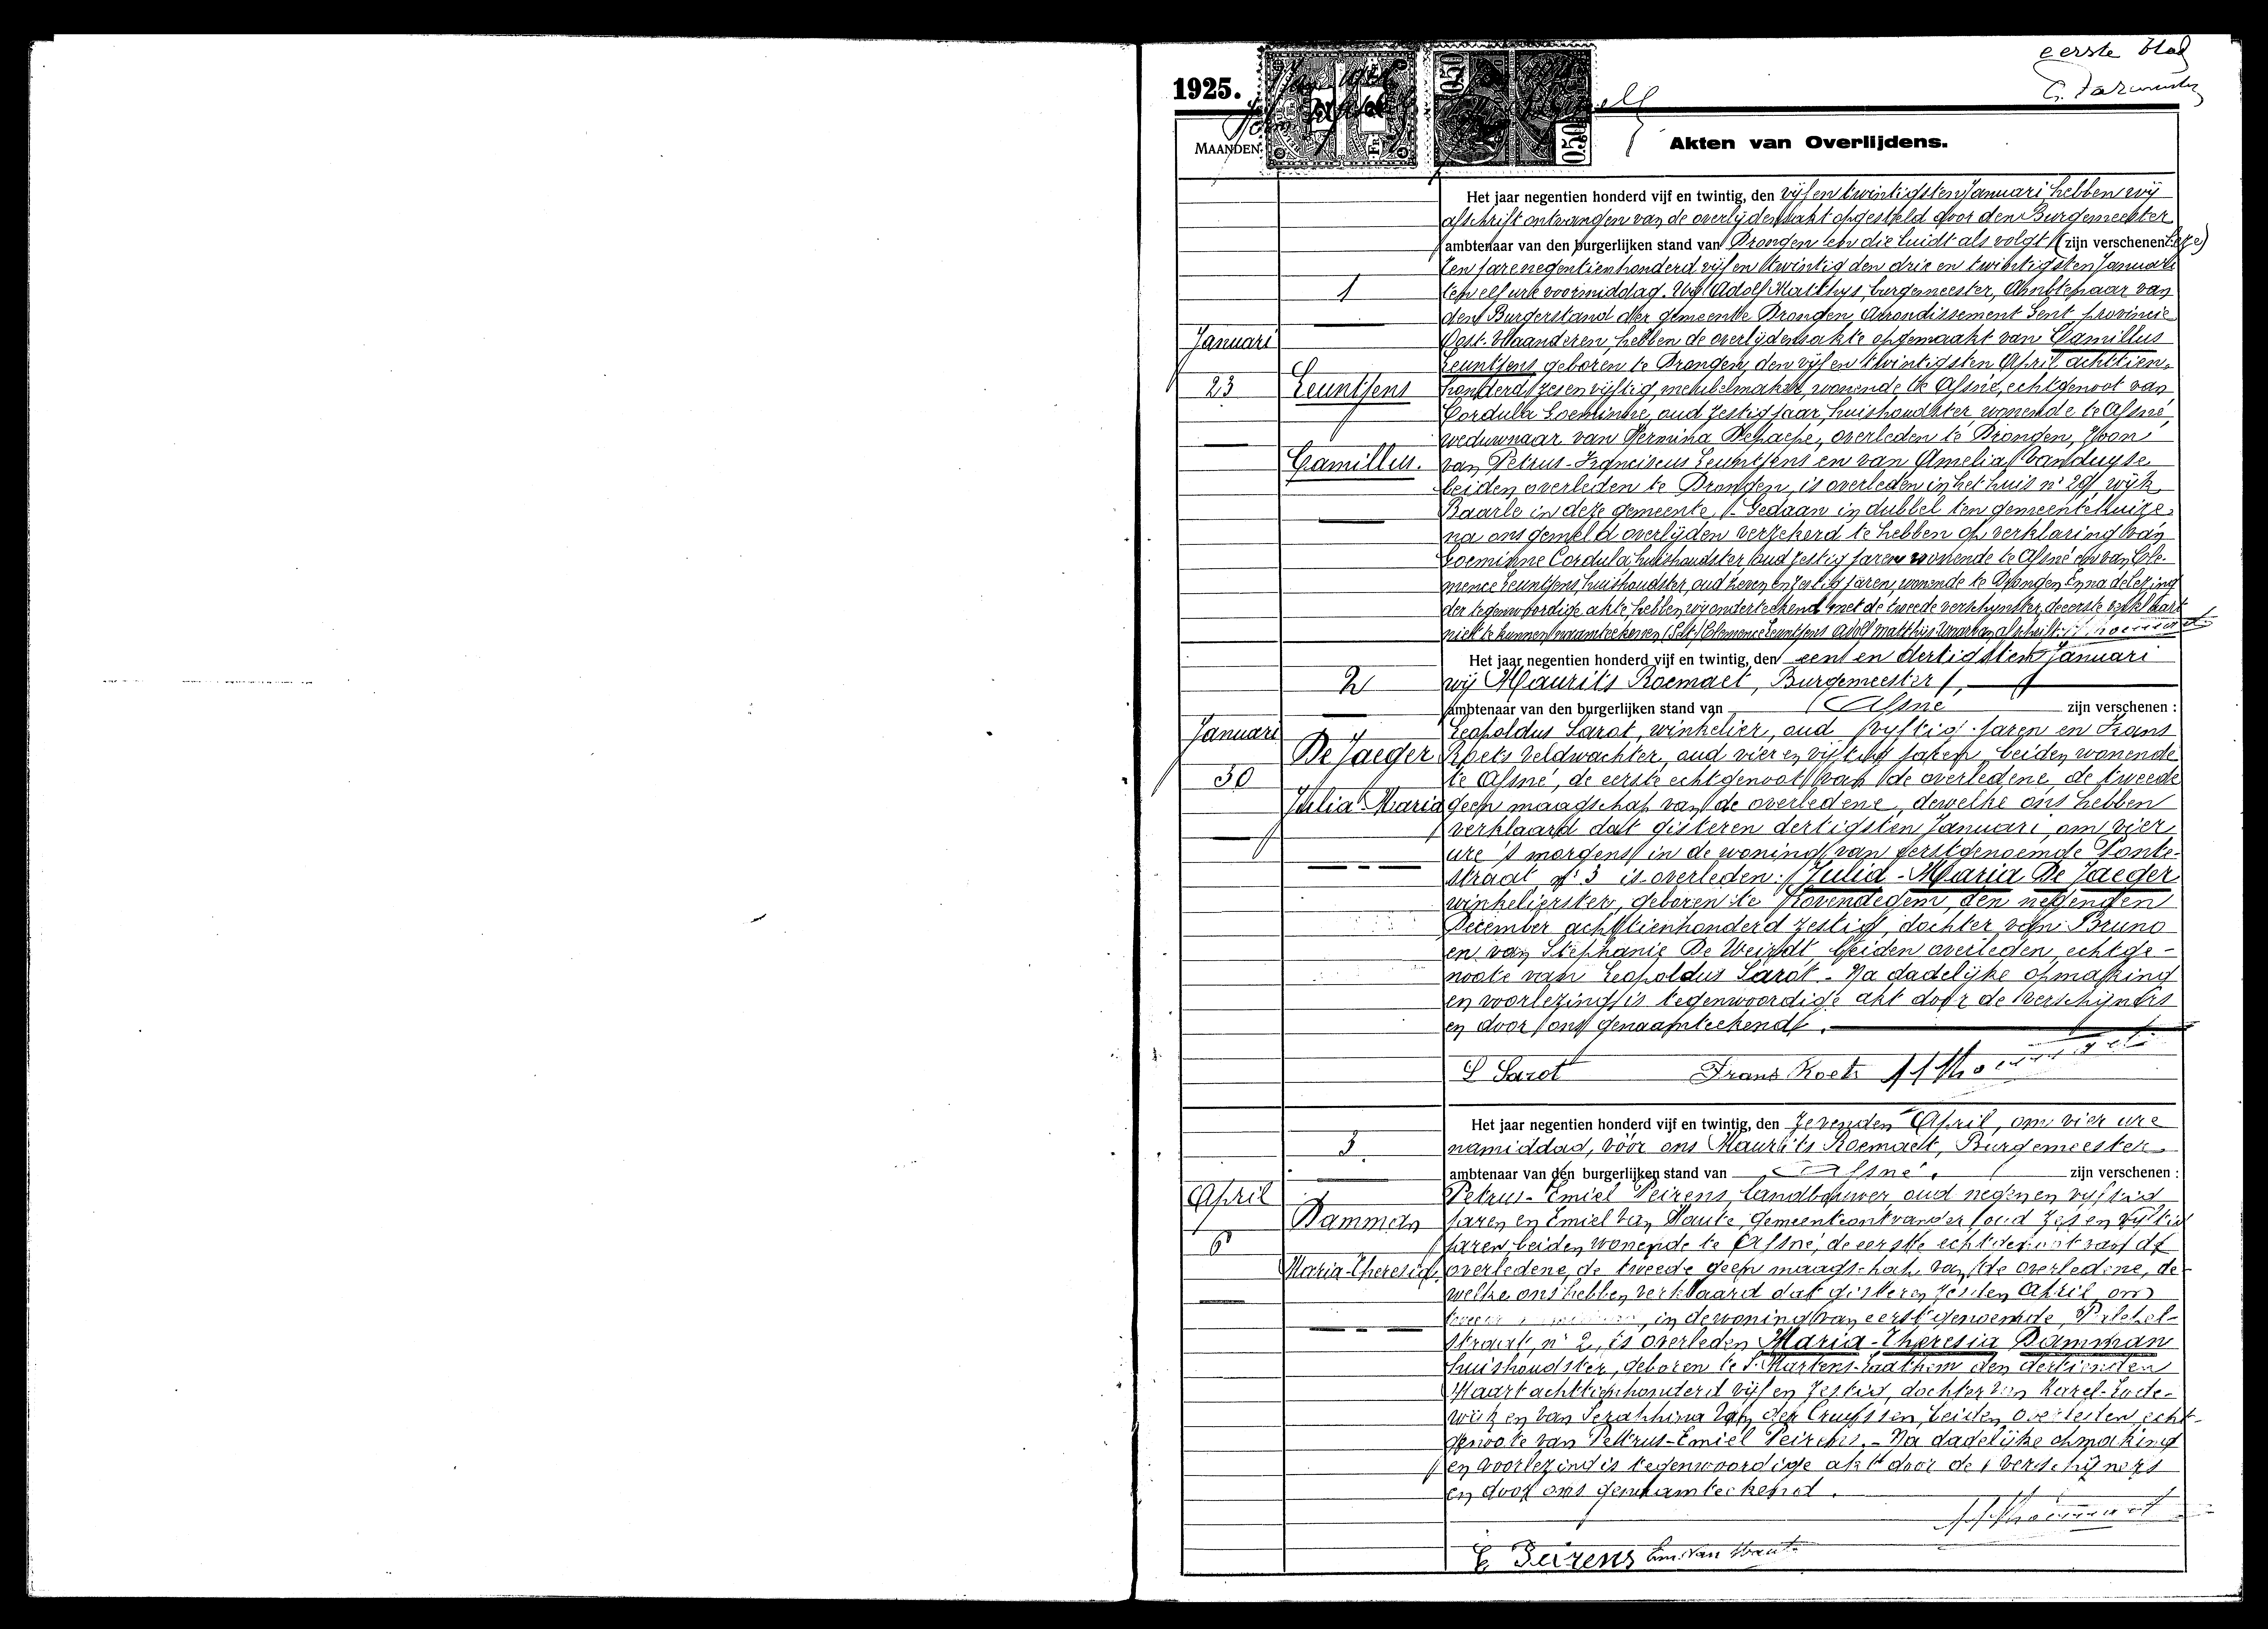 eerste blad
1925.
0.50
0.50
MAANDEN
Akten van Overlijdens.
Het jaar negentien honderd vijf en twintig, den vijf en twintigsten Januari hebben wij
afschrift ontvangen van de overlijdensakt opgesteld door den Burgemeester
ambtenaar van den burgerlijken stand van Drongen en die luidt als volgt (zijn verschenen
Ten jare negentienhonderd vijf en twintig den drie en twintigsten Januari
1
ten elf ure voormiddag. Wij Adolf Matthys, burgemeester, Ambtenaar van
den Burgerstand der gemeente Drongen, Arrondissement Gent provincie
Januari
Oost-Vlaanderen, hebben de overlijdensakte opgemaakt van Camillus
Leuntjens geboren te Drongen, den vijf en twintigsten April achttien-
23
Leuntjens
honderd zes en vijftig, meubelmaker, wonende te Afsné, echtgenoot van
Cordula Goeminne, oud zestig jaar, huishoudster, wonende te Afsné,
weduwnaar van Hermina Depaepe, overleden te Drongen, zoon
Camillus.
van Petrus-Franciscus Leuntjens en van Amelia Vanduyse
beiden overleden te Drongen, is overleden in het huis n° 29 wijk
Baarle in deze gemeente. - Gedaan in dubbel ten gemeentehuize,
na ons gemeld overlijden verzekerd te hebben op verklaring van
Goeminne Cordula huishoudster, oud zestig jaren wonende te Afsné en van Cle-
mence Leuntjens, huishoudster, oud zeven en zestig jaren, wonende te Drongen. En na delezing
der tegenwoordige akte hebben wij onderteekend met de tweede verschijnster, de eerste verklaart
niet te kunnen naamteekenen. (Get.) Clemence Leuntjens Adolf Matthys. Waarvan afschrift.
Het jaar negentien honderd vijf en twintig, den een en dertigsten Januari
2
wij Maurits Roemaet, Burgemeester,
ambtenaar van den burgerlijken stand van Afsné zijn verschenen :
Januari
Leopoldus Sarot, winkelier, oud vijftig jaren en Frans
De Jaeger
Koets veldwachter, oud vier en vijftig jaren, beiden wonende
30
te Afsné, de eerste echtgenoot van de overledene, de tweede
Julia-Maria
geen maagschap van de overledene, dewelke ons hebben
verklaard dat gisteren dertigsten Januari, om vier
ure 's morgens in de woning van eerstgenoemde Ponte-
straat n° 3 is overleden: Julia-Maria De Jaeger
winkelierster, geboren te Lovendegem, den negenden
December achttienhonderd zestig, dochter van Bruno
en van Stephanie De Weirdt, beiden overleden, echtge-
noote van Leopoldus Sarot. - Na dadelijke opmaking
en voorlezing is tegenwoordige akt door de verschijners
en door ons genaamteekend.
L Sarot Frans Koets
Het jaar negentien honderd vijf en twintig, den zevenden April, om vier ure
3
namiddag, vóór ons Maurits Roemaet, Burgemeester
ambtenaar van den burgerlijken stand van Afsné. zijn verschenen :
April
Petrus-Emiel Peirens, landbouwer, oud negen en vijftig
Damman
jaren en Emiel Van Haute, gemeenteontvanger oud zes en vijftig
6
jaren, beiden wonende te Afsné, de eerste echtgenoot van de
Maria-Theresia
overledene, de tweede geen maagschap van de overledene, de-
welke ons hebben verklaard dat gisteren zesden April om
in de woning van eerstgenoemde,
straat, n° 2, is overleden Maria-Theresia Damman
huishoudster, geboren te St Martens-Laathem den dertienden
Maart achttienhonderd vijf en zestig, dochter van Karel-Lode-
wijk en van Seraphina Van der Cruyssen, beiden overleden, echt-
genoote van Petrus-Emiel Peirens. - Na dadelijke opmaking
en voorlezing is tegenwoordige akt door de verschijners
en door ons genaamteekend.
E Peirens Em. Van Haute